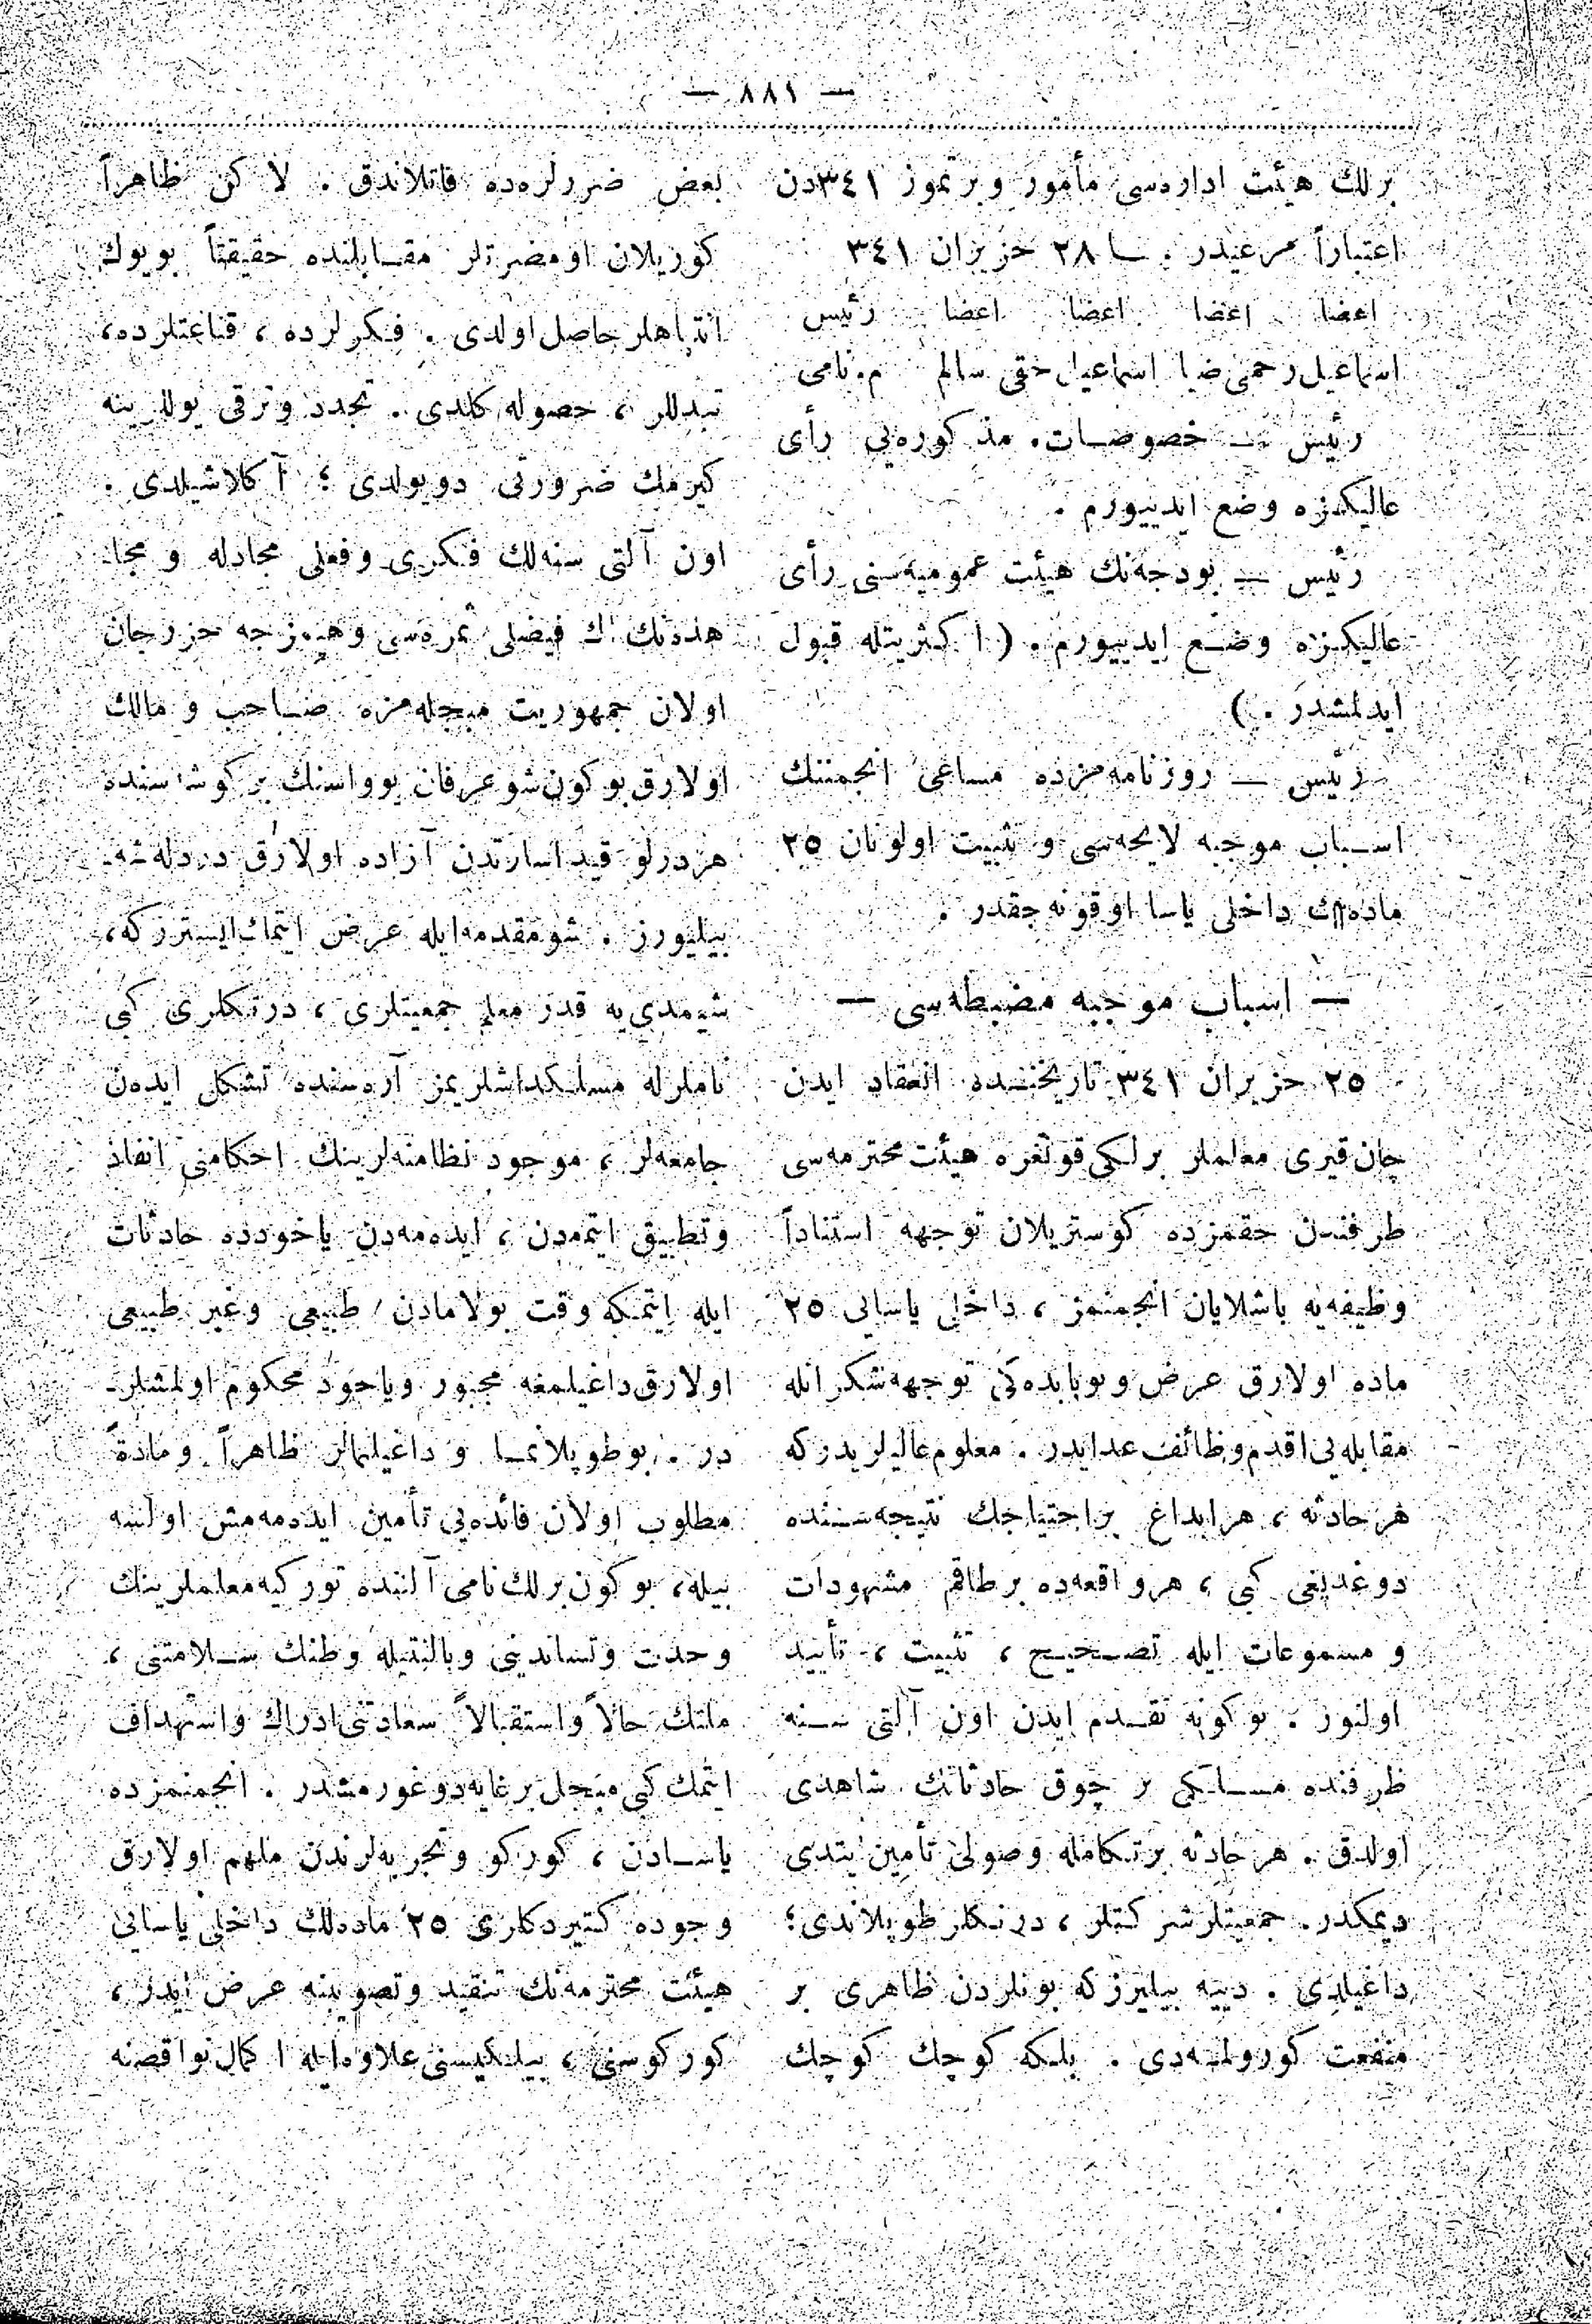 — ٨٨١ —
برلك هیئت اداره‌سی مأمور و بر تموز ٣٤١دن
اعتباراً مرعیدر . ٢٨ حزیران ٣٤١
اعضا اعضا اعضا اعضا رئیس
اسماعیل رحمی ضیا اسماعیل حقی سالم م.نامی
رئیس — خصوصات. مذكوره‌یی رأی
عالیكزه وضع ایدییورم .
رئیس — بودجه‌نك هیئت عمومیه‌سنی رأی
عالیكزه وضع ایدییورم . ( اكثریتله قبول
ایدلمشدر .)
رئیس — روزنامه‌مزده مساعی انجمننك
اسباب موجبه لایحه‌سی و تثبیت اولونان ٢٥
ماده‌لك داخلی یاسا اوقونه‌جقدر .
— اسباب موجبه مضبطه‌سی —
٢٥ حزیران ٣٤١ تاریخنده انعقاد ایدن
چان‌قیری معلملر برلكی قونغره هیئت محترمه‌سی
طرفندن حقمزده كوستریلان توجهه استناداً
وظیفه‌یه باشلایان انجمنمز ، داخلی یاسایی ٢٥
ماده اولارق عرض و بوبابده‌كی توجهه شكرانله
مقابله‌یی اقدم وظائف عد ایدر . معلوم عالیلریدركه
هر حادثه ، هر ابداع بر احتیاجك نتیجه‌سنده
دوغدیغی كبی ، هر واقعه‌ده بر طاقم مشهودات
و مسموعات ایله تصحیح ، تثبیت ، تأیید
اولنور . بوكونه تقدم ایدن اون آلتی سنه
ظرفنده مسلكی بر چوق حادثاتك شاهدی
اولدق . هر حادثه بر تكامله وصولی تأمین ایتدی
دیمكدر. جمعیتلر شركتلر ، درنكلر طوپلاندی؛
داغیلدی . دییه بیلیرزكه بونلردن ظاهری بر
منفعت كورولمه‌دی . بلكه كوچك كوچك
بعض ضررلره‌ده قاتلاندق . لاكن ظاهراً
كوریلان او مضرتلر مقابلنده حقیقتاً بویوك
انتباهلر حاصل اولدی . فكرلرده ، قناعتلرده،
تبدللر ، حصوله كلدی . تجدد و ترقی یوللرینه
كیرمك ضرورتی دویولدی ؛ آكلاشیلدی .
اون آلتی سنه‌لك فكری وفعلی مجادله و مجا-
هده‌نك اك فیضلی ثمره‌سی وهپمزجه حرزجان
اولان جمهوریت مبجله‌مزه صاحب و مالك
اولارق بوكون شو عرفان یوواسنك بر كوشه‌سنده
هردرلو قید اسارتدن آزاده اولارق دردله‌شه-
بیلیورز . شو مقدمه ایله عرض ایتمك ایسترزكه،
شیمدی‌یه قدر معلم جمعیتلری ، درنكلری كبی
ناملرله مسلكداشلریمز آره‌سنده تشكل ایدەن
جامعه‌لر ، موجود نظامنه‌لرینك احكامنی انفاذ
وتطبیق ایتمدن ، ایده‌مه‌دن یاخودده حادثات
ایله ایتمكه وقت بولامادن ، طبیعی وغیر طبیعی
اولارق داغیلمغه مجبور ویاخود محكوم اولمشلر-
در . بو طوپلانما و داغیلمالر ظاهراً ومادةً
مطلوب اولان فائده‌یی تأمین ایده‌مه‌مش اولسه
بیله، بوكون برلك نامی آلتنده توركیه معلملرینك
وحدت وتساندینی وبالنتیجه وطنك سلامتنی ،
ملتك حالاً واستقبالاً سعادتنی ادراك واستهداف
ایتمك كبی مبجل بر غایه دوغورمشدر . انجمنمزده
یاسادن ، كوركو وتجربه‌لرندن ملهم اولارق
وجوده كتیردكلری ٢٥ ماده‌لك داخلی یاسایی
هیئت محترمه‌نك تنقید وتصویبنه عرض ایدر ،
كوركوسنی ، بیلكیسنی علاوه ایله اكمال نواقصنه